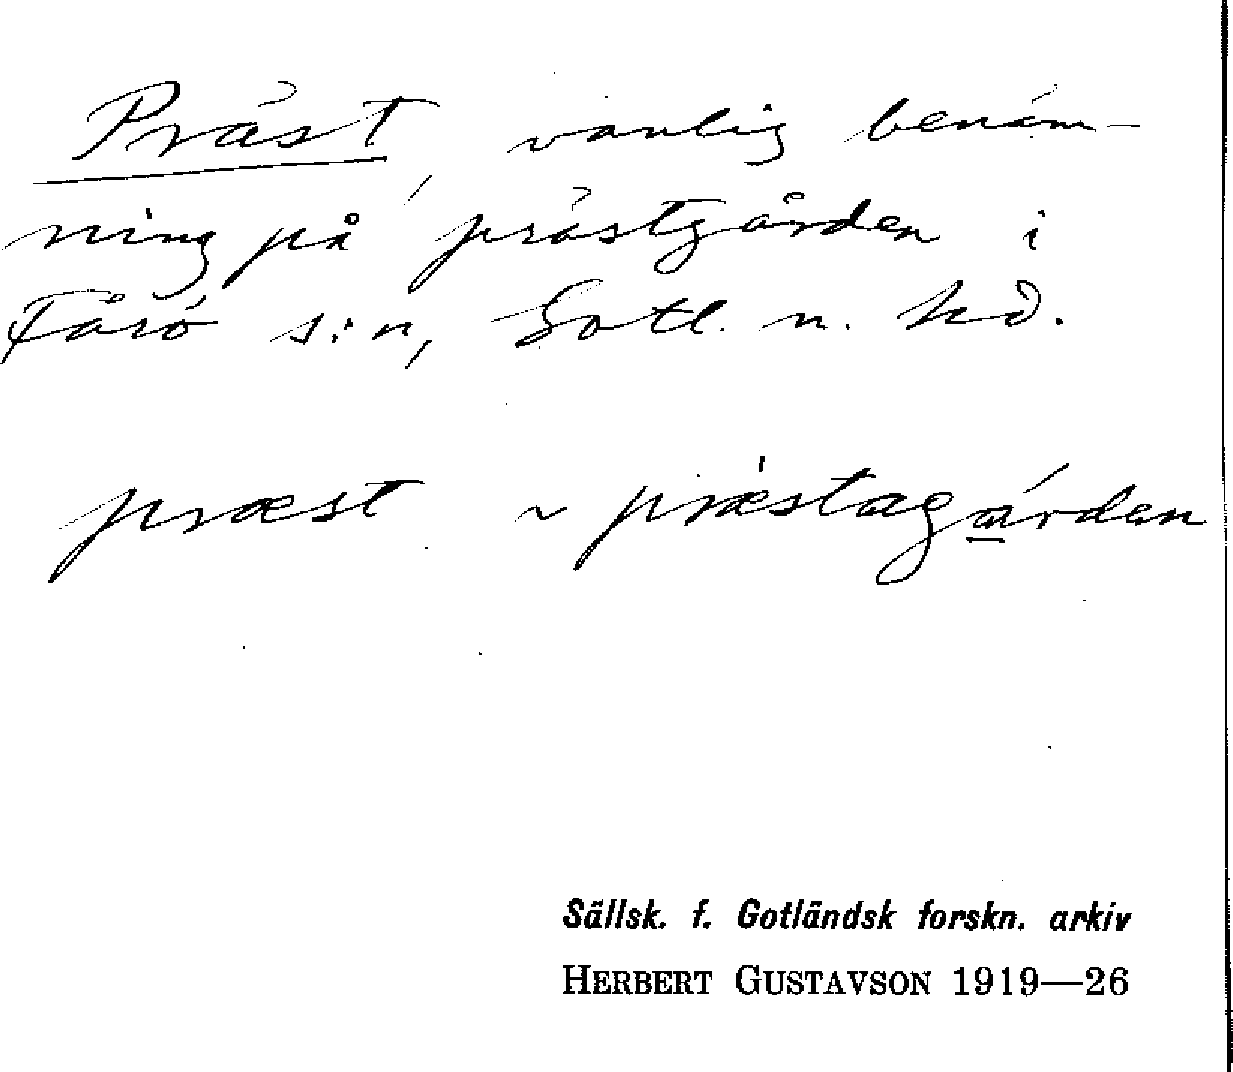 Präst, vanlig benäm-
ning på prästgården i
Fårö s:n, Gotl. n. hd.
præst ~ præstagárden
Sällsk. f. Gotländsk forskn. arkiv
HERBERT GUSTAVSON 1919—26